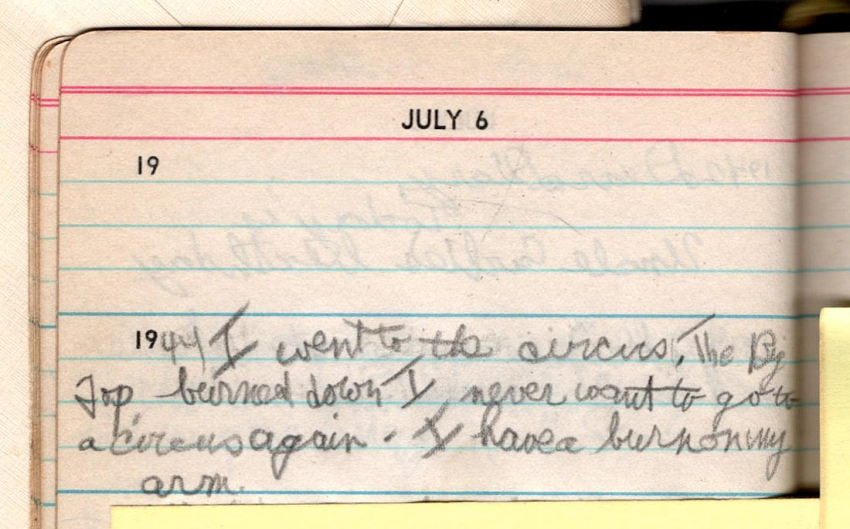 JULY 6
19
1944 I went to the circus. The Big
Top burned down I never want to go to
a circus again. I have a burn on my
arm.